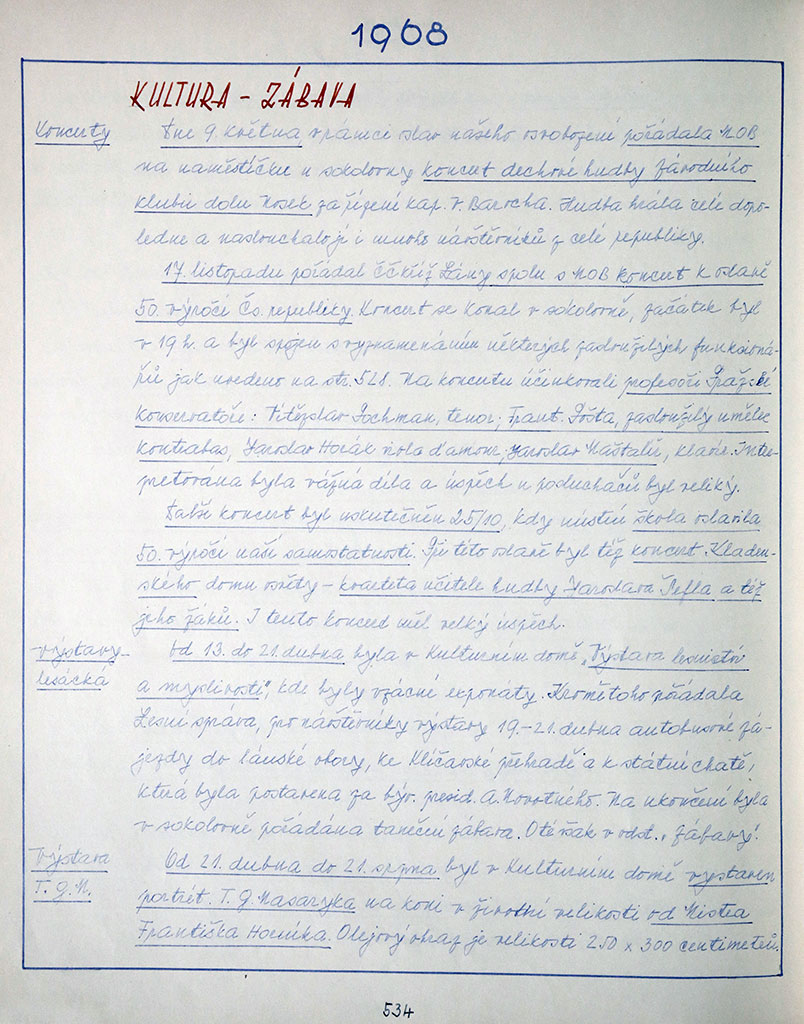 1968
KULTURA - ZÁBAVA
Koncerty
Dne 9. května v rámci oslav našeho osvobození pořádala MOB
na náměstíčku u sokolovny koncert dechové hudby závodního
klubu dolu Nosek za řízení kap. V. Barocha. Hudba hrála celé dopo-
ledne a naslouchalo jí i mnoho návštěvníků z celé republiky.
17. listopadu pořádal ČČKříž Lány spolu s MOB koncert k oslavě
50. výročí Čs. republiky. Koncert se konal v sokolovně, začátek byl
v 19 h. a byl spojen s vyznamenáním některých zasloužilých funkcioná-
řů jak uvedeno na str. 528. Na koncertu účinkovali profesoři Pražské
konservatoře: Vítězslav Pochman, tenor; Frant. Pošta, zasloužilý umělec
kontrabas, Jaroslav Horák viola d'amour, Jaroslav Maštalíř, klavír. Inter-
pretována byla vážná díla a úspěch u posluchačů byl veliký.
Další koncert byl uskutečněn 25/10, kdy místní škola oslavila
50. výročí naší samostatnosti. Při této oslavě byl též koncert Kladen-
ského domu osvěty - kvarteta učitele hudby Jaroslava Pefla a též
jeho žáků. I tento koncert měl velký úspěch.
výstavy -
lesácká
Od 13. do 21. dubna byla v Kulturním domě „Výstava lesnictví
a myslivosti", kde byly vzácné exponaty. Kromě toho pořádala
Lesní správa, pro návštěvníky výstavy 19.-21. dubna autobusové zá-
jezdy do lánské obory, ke Klíčavské přehradě a k státní chatě,
která byla postavena za býv. presid. A. Novotného. Na ukončení byla
v sokolovně pořádána taneční zábava. O té však v odst. „Zábavy".
Výstava
T. G. M.
Od 21. dubna do 21. srpna byl v Kulturním domě vystaven
portrét T. G. Masaryka na koni v životní velikosti od Mistra
Františka Horníka. Olejový obraz je velikosti 250 x 300 centimetrů.
534